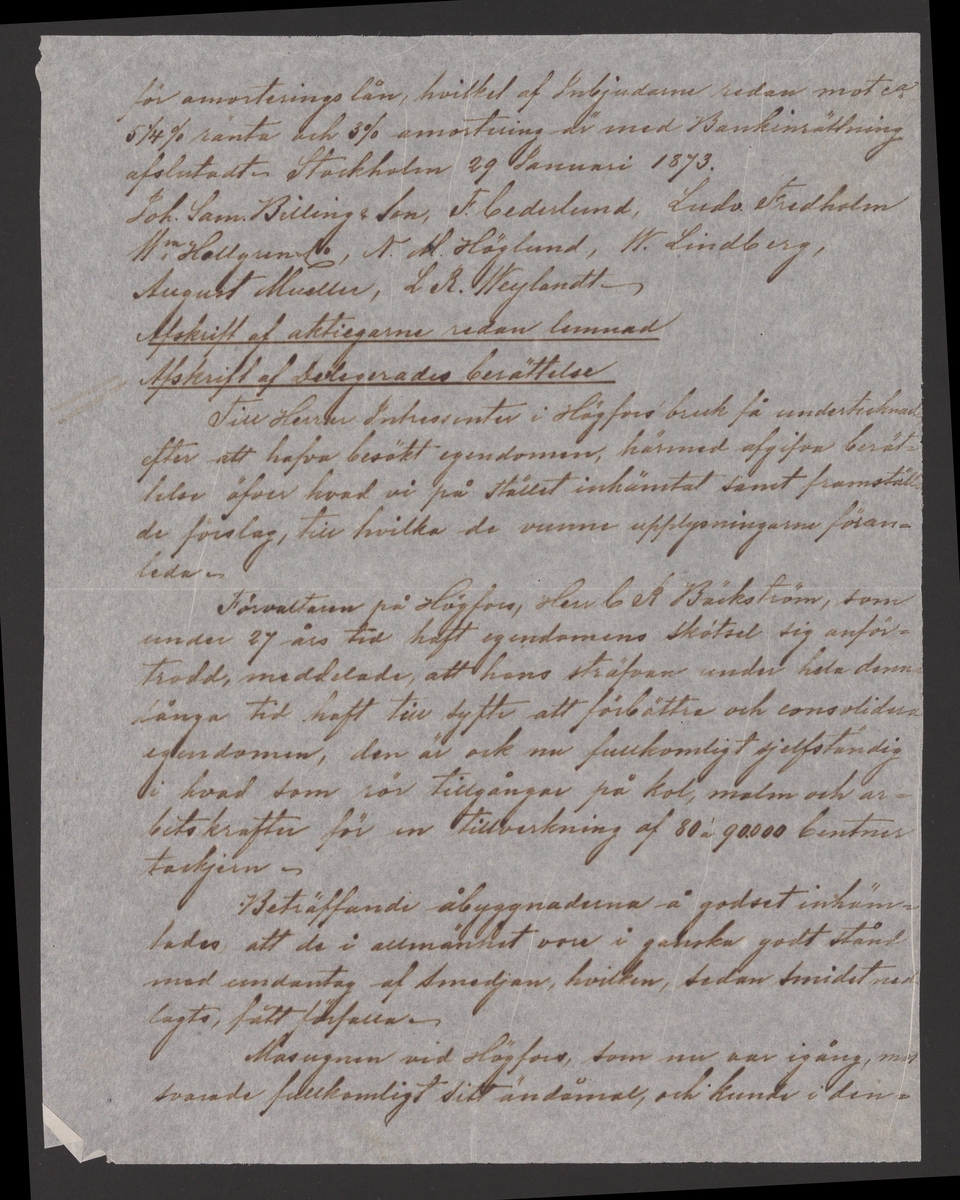 för amorterings lån, hvilket af Inbjudarne redan mot ca
5 1/4 % ränta och 3% amortering är med Bankinrättning
afslutadt. Stockholm 29 Januari 1873.
Joh. Sam. Billing & Son, F. Cederlund, Ludv. Fredholm
Wm Hellgren & Co, N. M. Höglund, W. Lindberg,
August Mueller, L R. Weylandt
Afskrift af aktiegarne redan lemnad
Afskrift af Delegerades berättelse
Till Herrar Intressenter i Högfors bruk få undertecknad
efter att hafva besökt egendomen, härmed afgifva berät-
telse öfver hvad vi på stället inhämtat samt framställ
de förslag, till hvilka de vunne upplysningarne föran-
leda
Förvaltaren på Högfors, Herr C R Bäckström, som
under 27 års tid haft egendomens skötsel sig anför-
trodd, meddelade, att hans sträfvan under hela denn
långa tid haft till syfte att förbättre och consolidera
egendomen, den är ock nu fullkomligt sjelfständig
i hvad som rör tillgångar på kol, malm och ar-
betskrafter för en tillverkning af 80 à 90.000 Centner
tackjern
Beträffande åbyggnaderna å godset inhäm-
tades att de i allmänhet vore i ganska godt stånd
med undantag af smedjan, hvilken, sedan smidet ned
lagts, fått förfalla
Masugnen vid Högfors, som nu var igång, mot
svarade fullkomligt sitt ändåmal, och kunde i den-